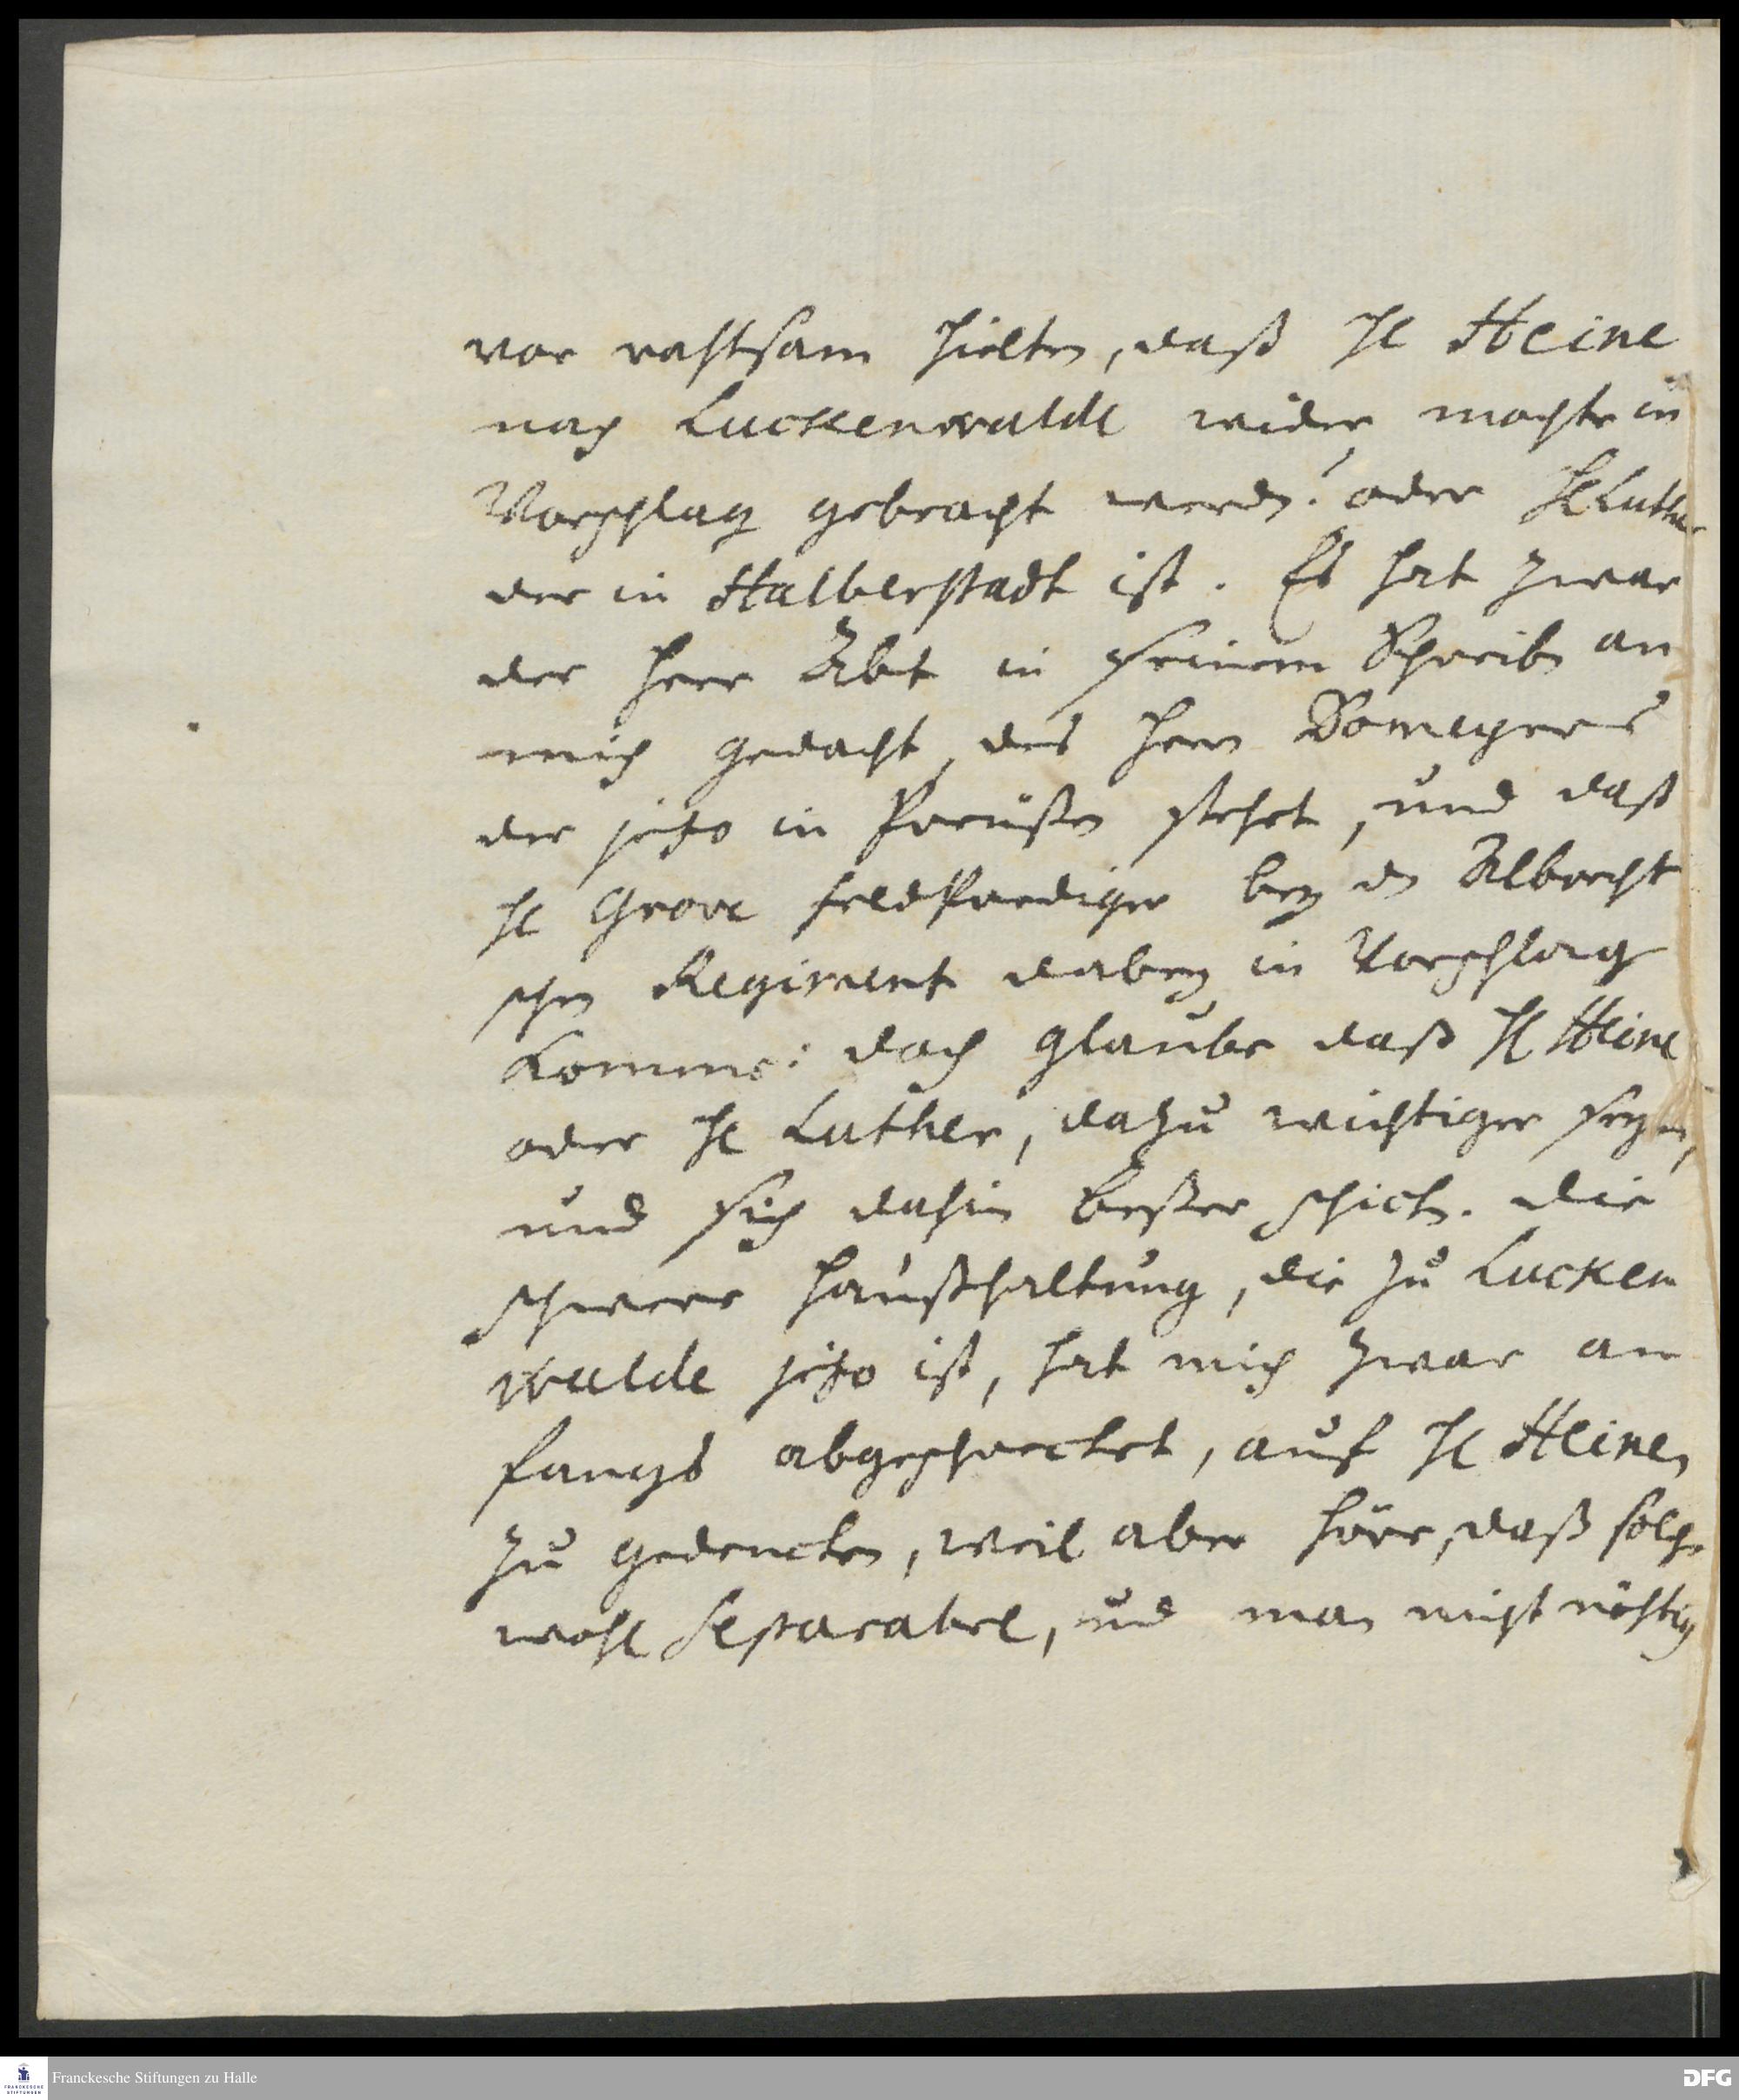 vor rahtsam hielten, daß H Heine
nach Luckenwalde wieder mochte in
Vorschlag gebracht werden! oder H Luther
der in Halberstadt ist. Es hat zwar
der Herr Abt in seinem Schreiben an
mich gedacht, des Herrn Bomeyers
der jetzo in Preußen stehet, und daß
H Grove Feldprediger bey den Albrecht
schen Regiment dabey in Vorschlag
komme: doch glaube daß H Heine
oder H Luther, dazu wichtiger seyn,
und sich dahin beßer schicken. Die
schwere Haußhaltung, die zu Lucken
walde jetzo ist, hat mich zwar an
fangs abgeschrecket, auf H Heinen
zu gedencken, weil aber höre, daß solche
wohl separabel, und man nicht nöhtig
Franckesche Stiftungen zu Halle
FRANCKESCHE
STIFTUNGEN
DFG